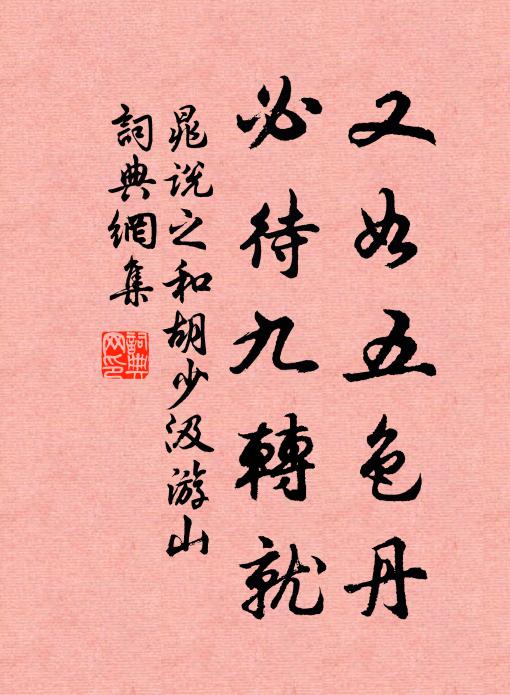 又如五色丹
必待九轉就
晁說之和胡少汲游山
詞典網集
詞典網印